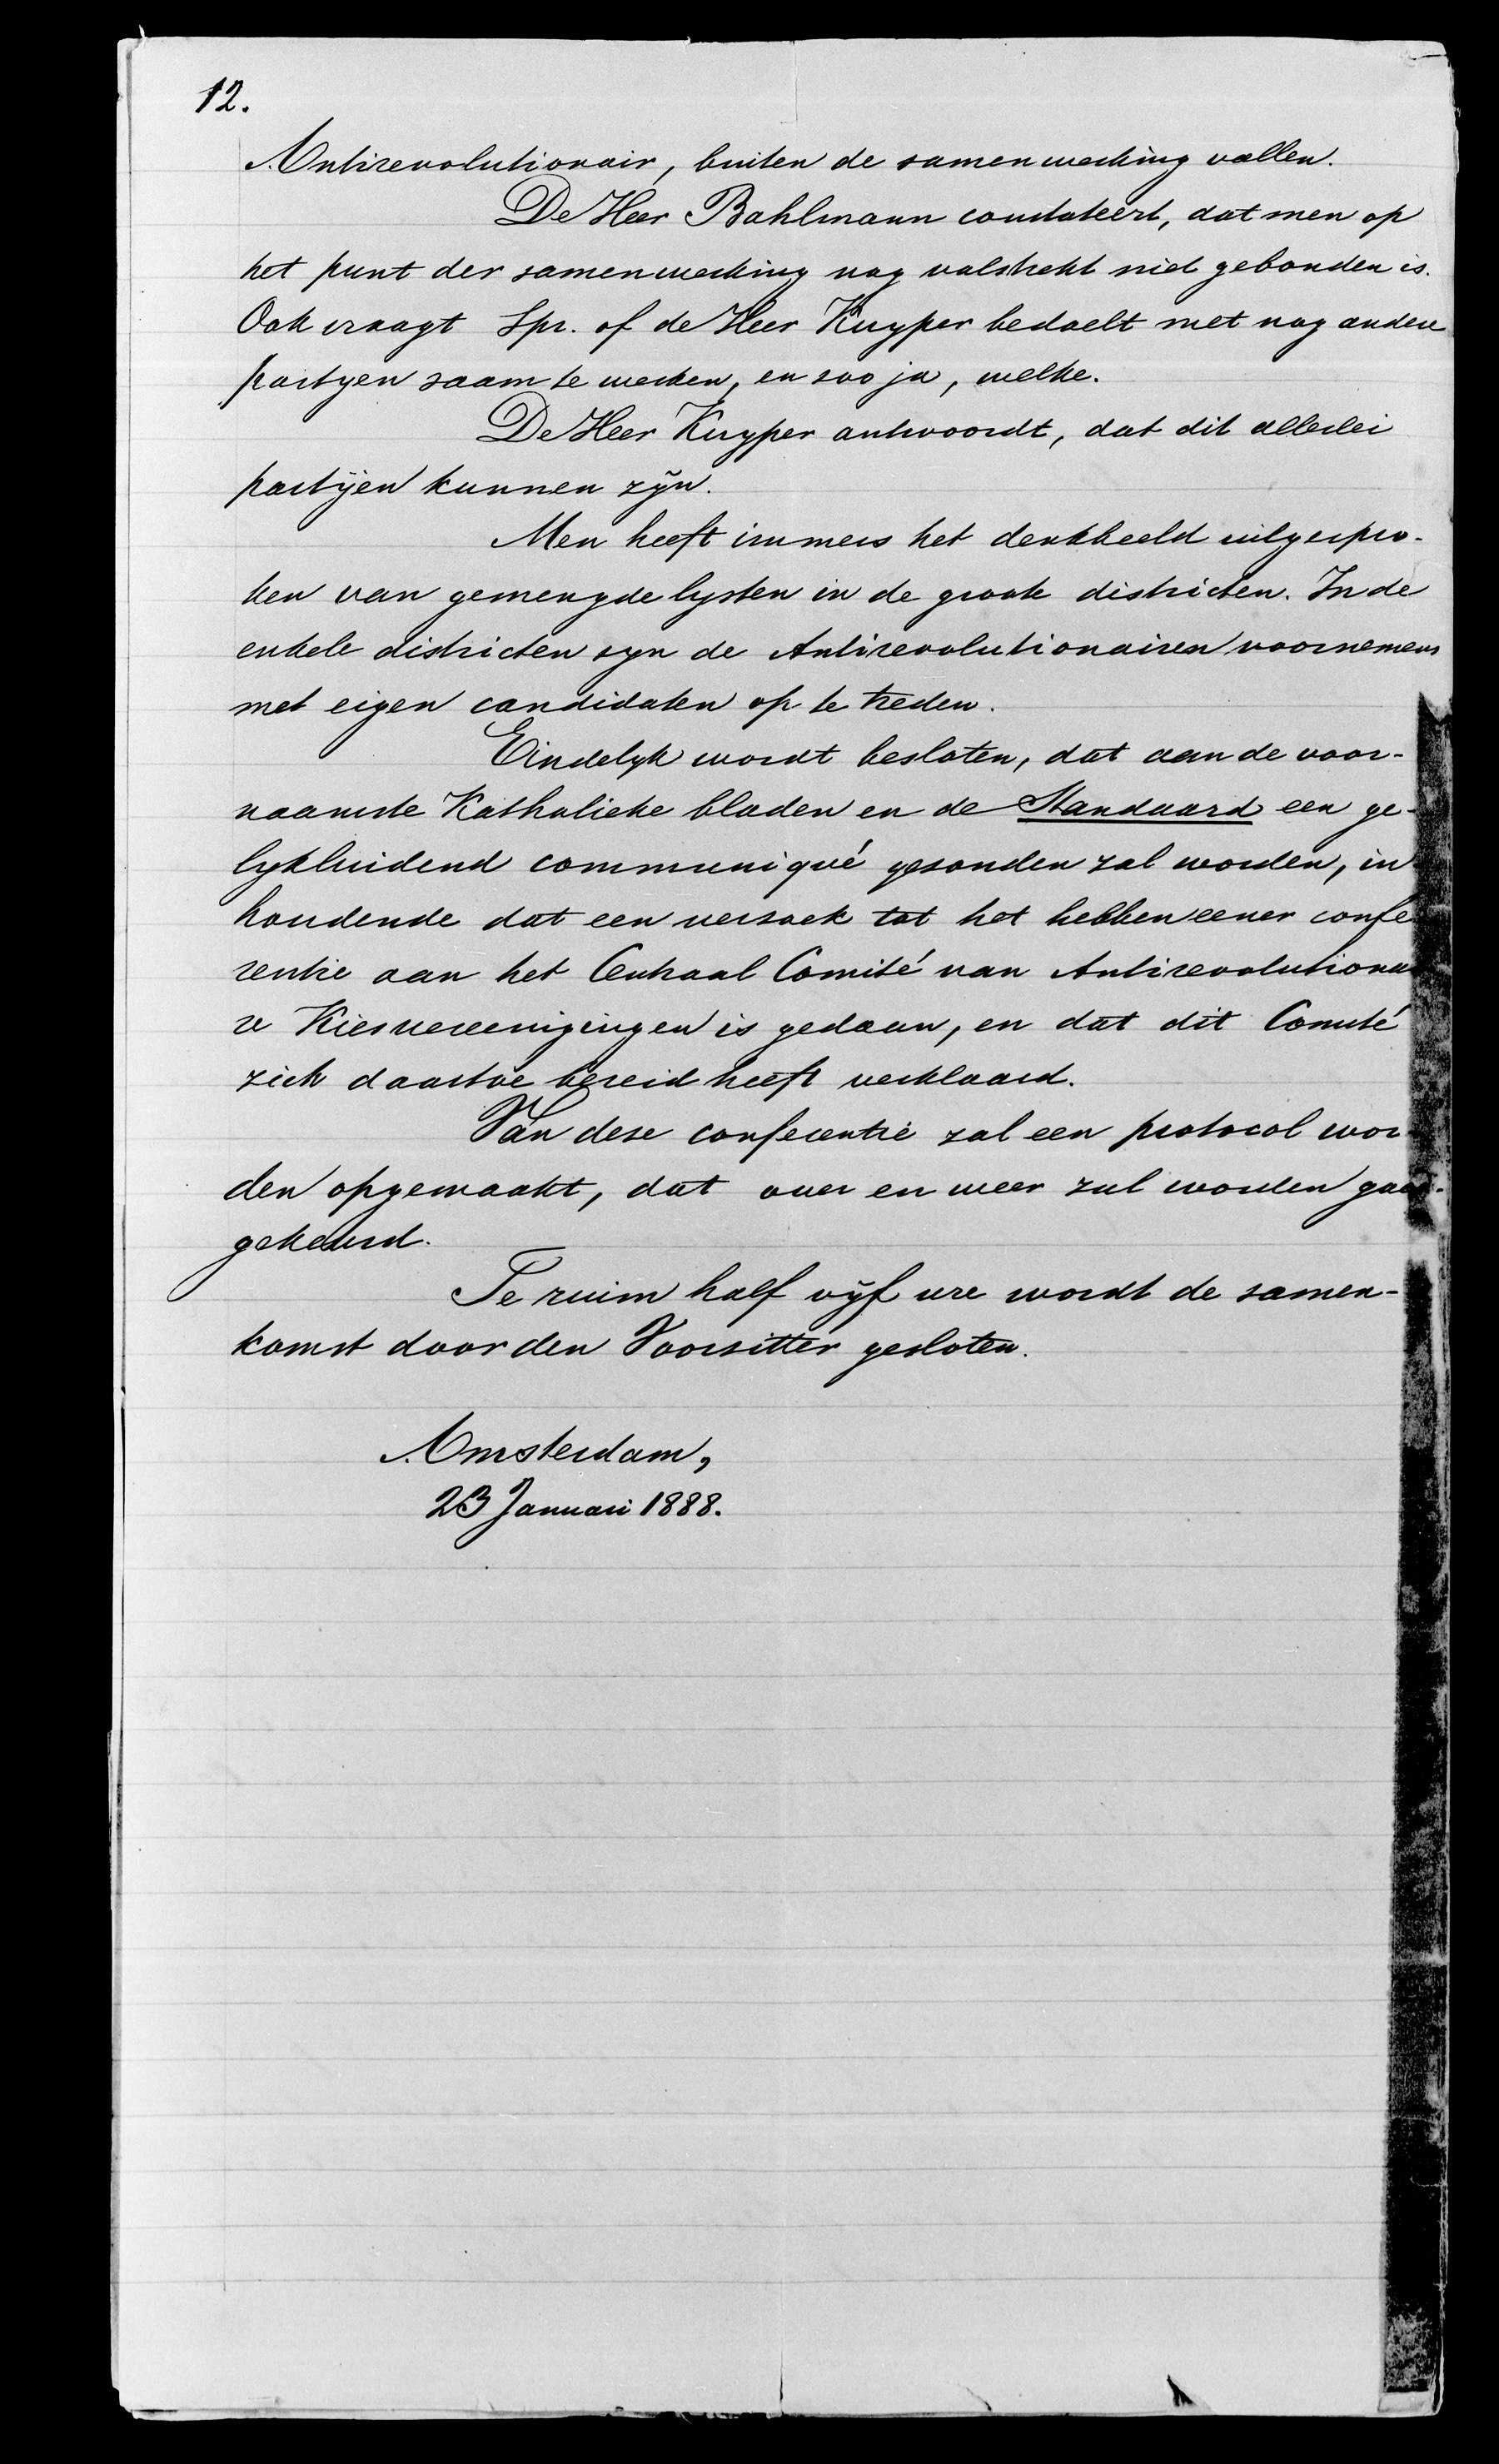 12.
Antirevolutionair, buiten de samenwerking vallen.
De Heer Bahlmann constateert, dat men op
het punt der samenwerking nog volstrekt niet gebonden is.
Ook vraagt Spr. of de Heer Kuyper bedoelt met nog andere
partyen saam te werken, en zoo ja, welke.
De Heer Kuyper antwoordt, dat dit allerlei
partijen kunnen zijn.
Men heeft immers het denkbeeld uitgespro-
ken van gemengde lysten in de groote districten. In de
enkele districten zyn de Antirevolutionairen voornemens
met eigen candidaten op te treden.
Eindelyk wordt besloten, dat aan de voor-
naamste Katholieke bladen en de Standaard een ge-
lykluidend communiqué gezonden zal worden, in-
houdende dat een verzoek tot het hebben eener confe
rentie aan het Centraal Comité van Antirevolutionai
re Kiesvereenigingen is gedaan, en dat dit Comité
zich daartoe bereid heeft verklaard.
Van deze conferentie zal een protocol wor-
den opgemaakt, dat over en weer zal worden goed-
gekeurd.
Te ruim half vijf ure wordt de samen-
komst door den Voorzitter gesloten.
Amsterdam,
23 Januari 1888.